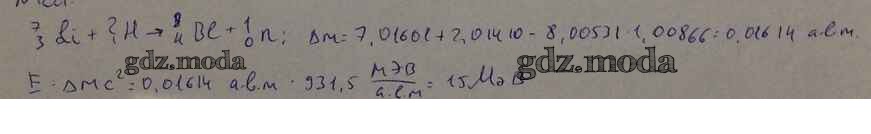 ⁷₃Li + ²₁H → ⁸₄Be + ¹₀n; Δm = 7,01601 + 2,01410 - 8,00531 - 1,00866 = 0,01614 а.е.м.
gdz.moda gdz.moda
E = Δmc² = 0,01614 а.е.м · 931,5 МэВ/а.е.м = 15 МэВ